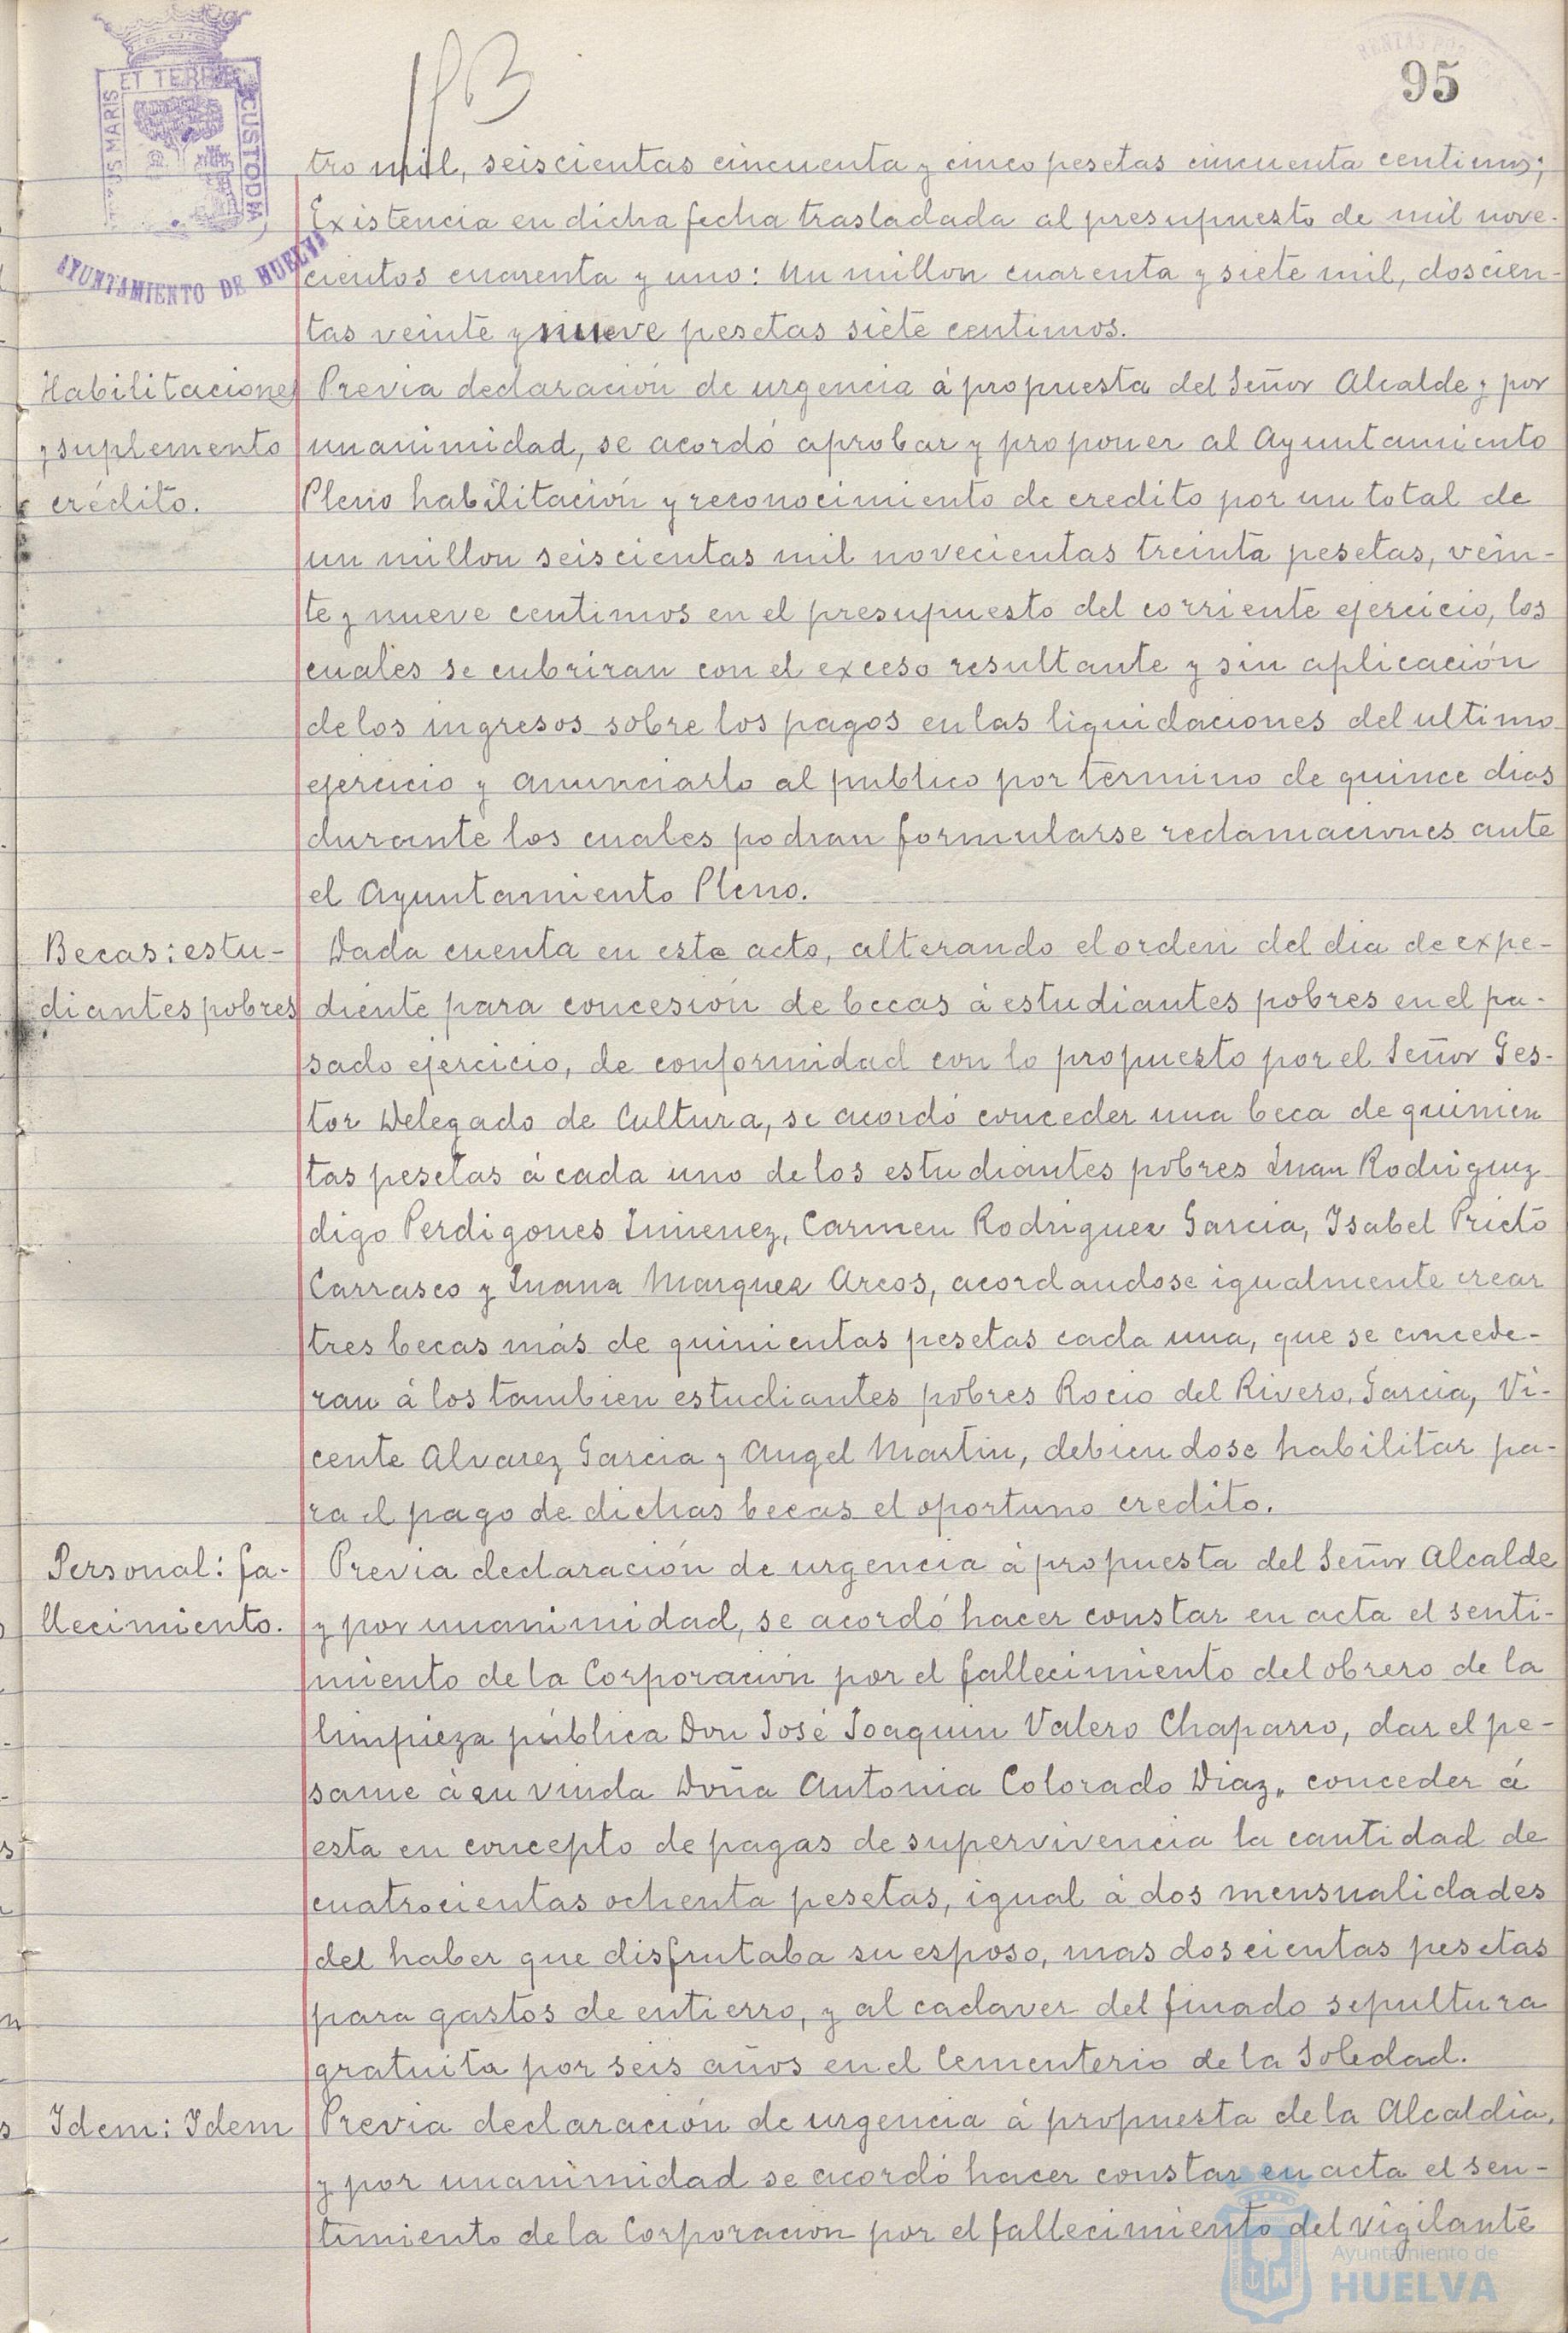 95
ET TERRE CUSTODIA
MARIS
AYUNTAMIENTO DE HUELVA
tro mil, seiscientas cincuenta y cinco pesetas cincuenta centimos;
Existencia en dicha fecha trasladada al presupuesto de mil nove-
cientos cuarenta y uno: Un millon cuarenta y siete mil, doscien-
tas veinte y nueve pesetas siete centimos.
Habilitaciones
y suplemento
crédito.
Previa declaración de urgencia á propuesta del Señor Alcalde y por
unanimidad, se acordó aprobar y proponer al Ayuntamiento
Pleno habilitación y reconocimiento de credito por un total de
un millon seiscientas mil novecientas treinta pesetas, vein-
te y nueve centimos en el presupuesto del corriente ejercicio, los
cuales se cubriran con el exceso resultante y sin aplicación
de los ingresos sobre los pagos en las liquidaciones del ultimo
ejercicio y anunciarlo al publico por termino de quince dias
durante los cuales podran formularse reclamaciones ante
el Ayuntamiento Pleno.
Becas: estu-
diantes pobres
Dada cuenta en este acto, alterando el orden del dia de expe-
diente para concesión de becas á estudiantes pobres en el pa-
sado ejercicio, de conformidad con lo propuesto por el Señor Ges-
tor Delegado de Cultura, se acordó conceder una beca de quinien
tas pesetas á cada uno de los estudiantes pobres Juan Rodriguez
digo Perdigones Jimenez, Carmen Rodriguez Garcia, Isabel Prieto
Carrasco y Juana Marquez Arcos, acordandose igualmente crear
tres becas más de quinientas pesetas cada una, que se concede-
ran á los tambien estudiantes pobres Rocio del Rivero Garcia, Vi-
cente Alvarez Garcia y Angel Martin, debiendose habilitar pa-
ra el pago de dichas becas el oportuno credito.
Personal: fa-
llecimiento.
Previa declaración de urgencia á propuesta del Señor Alcalde
y por unanimidad, se acordó hacer constar en acta el senti-
miento de la Corporación por el fallecimiento del obrero de la
limpieza pública Don José Joaquin Valero Chaparro, dar el pe-
same á su viuda Doña Antonia Colorado Diaz, conceder á
esta en concepto de pagas de supervivencia la cantidad de
cuatrocientas ochenta pesetas, igual á dos mensualidades
del haber que disfrutaba su esposo, mas doscientas pesetas
para gastos de entierro, y al cadaver del finado sepultura
gratuita por seis años en el Cementerio de la Soledad.
Idem: Idem
Previa declaración de urgencia á propuesta de la Alcaldia,
y por unanimidad se acordó hacer constar en acta el sen-
timiento de la Corporacion por el fallecimiento del vigilante
Ayuntamiento de
HUELVA